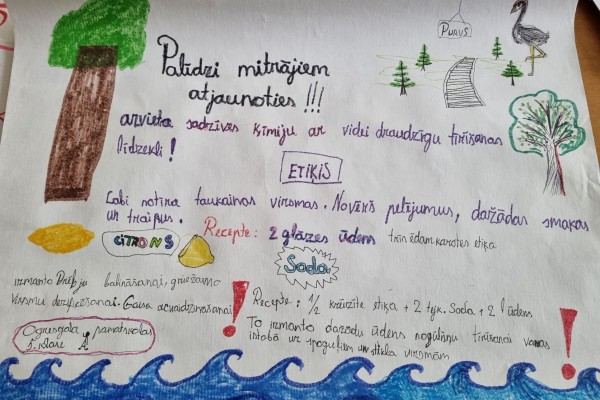 PURVS
Palīdzi mitrājiem
atjaunoties !!!
aizvieto sadzīves ķīmiju ar videi draudzīgu tīrīšanas
līdzekli !
ETIĶIS
Labi notīra taukainas virsmas. Novērš pelējumus, dažādas smakas
un traipus.
Recepte: 2 glāzes ūdens trīs ēdamkarotes etiķa
CITRONS
Soda
izmanto Drēbju balināšanai, griežamo
virsmu dezificēšanai. Gaisa
Recepte: 1/2 krūzīte etiķa + 2 tējk. Soda + 2 l ūdens
To izmanto dažādu ūdens nogulšņu tīrīšanai vannas
istabā uz spoguļiem un stikla virsmām
Ogresgala pamatskolas
5. klase